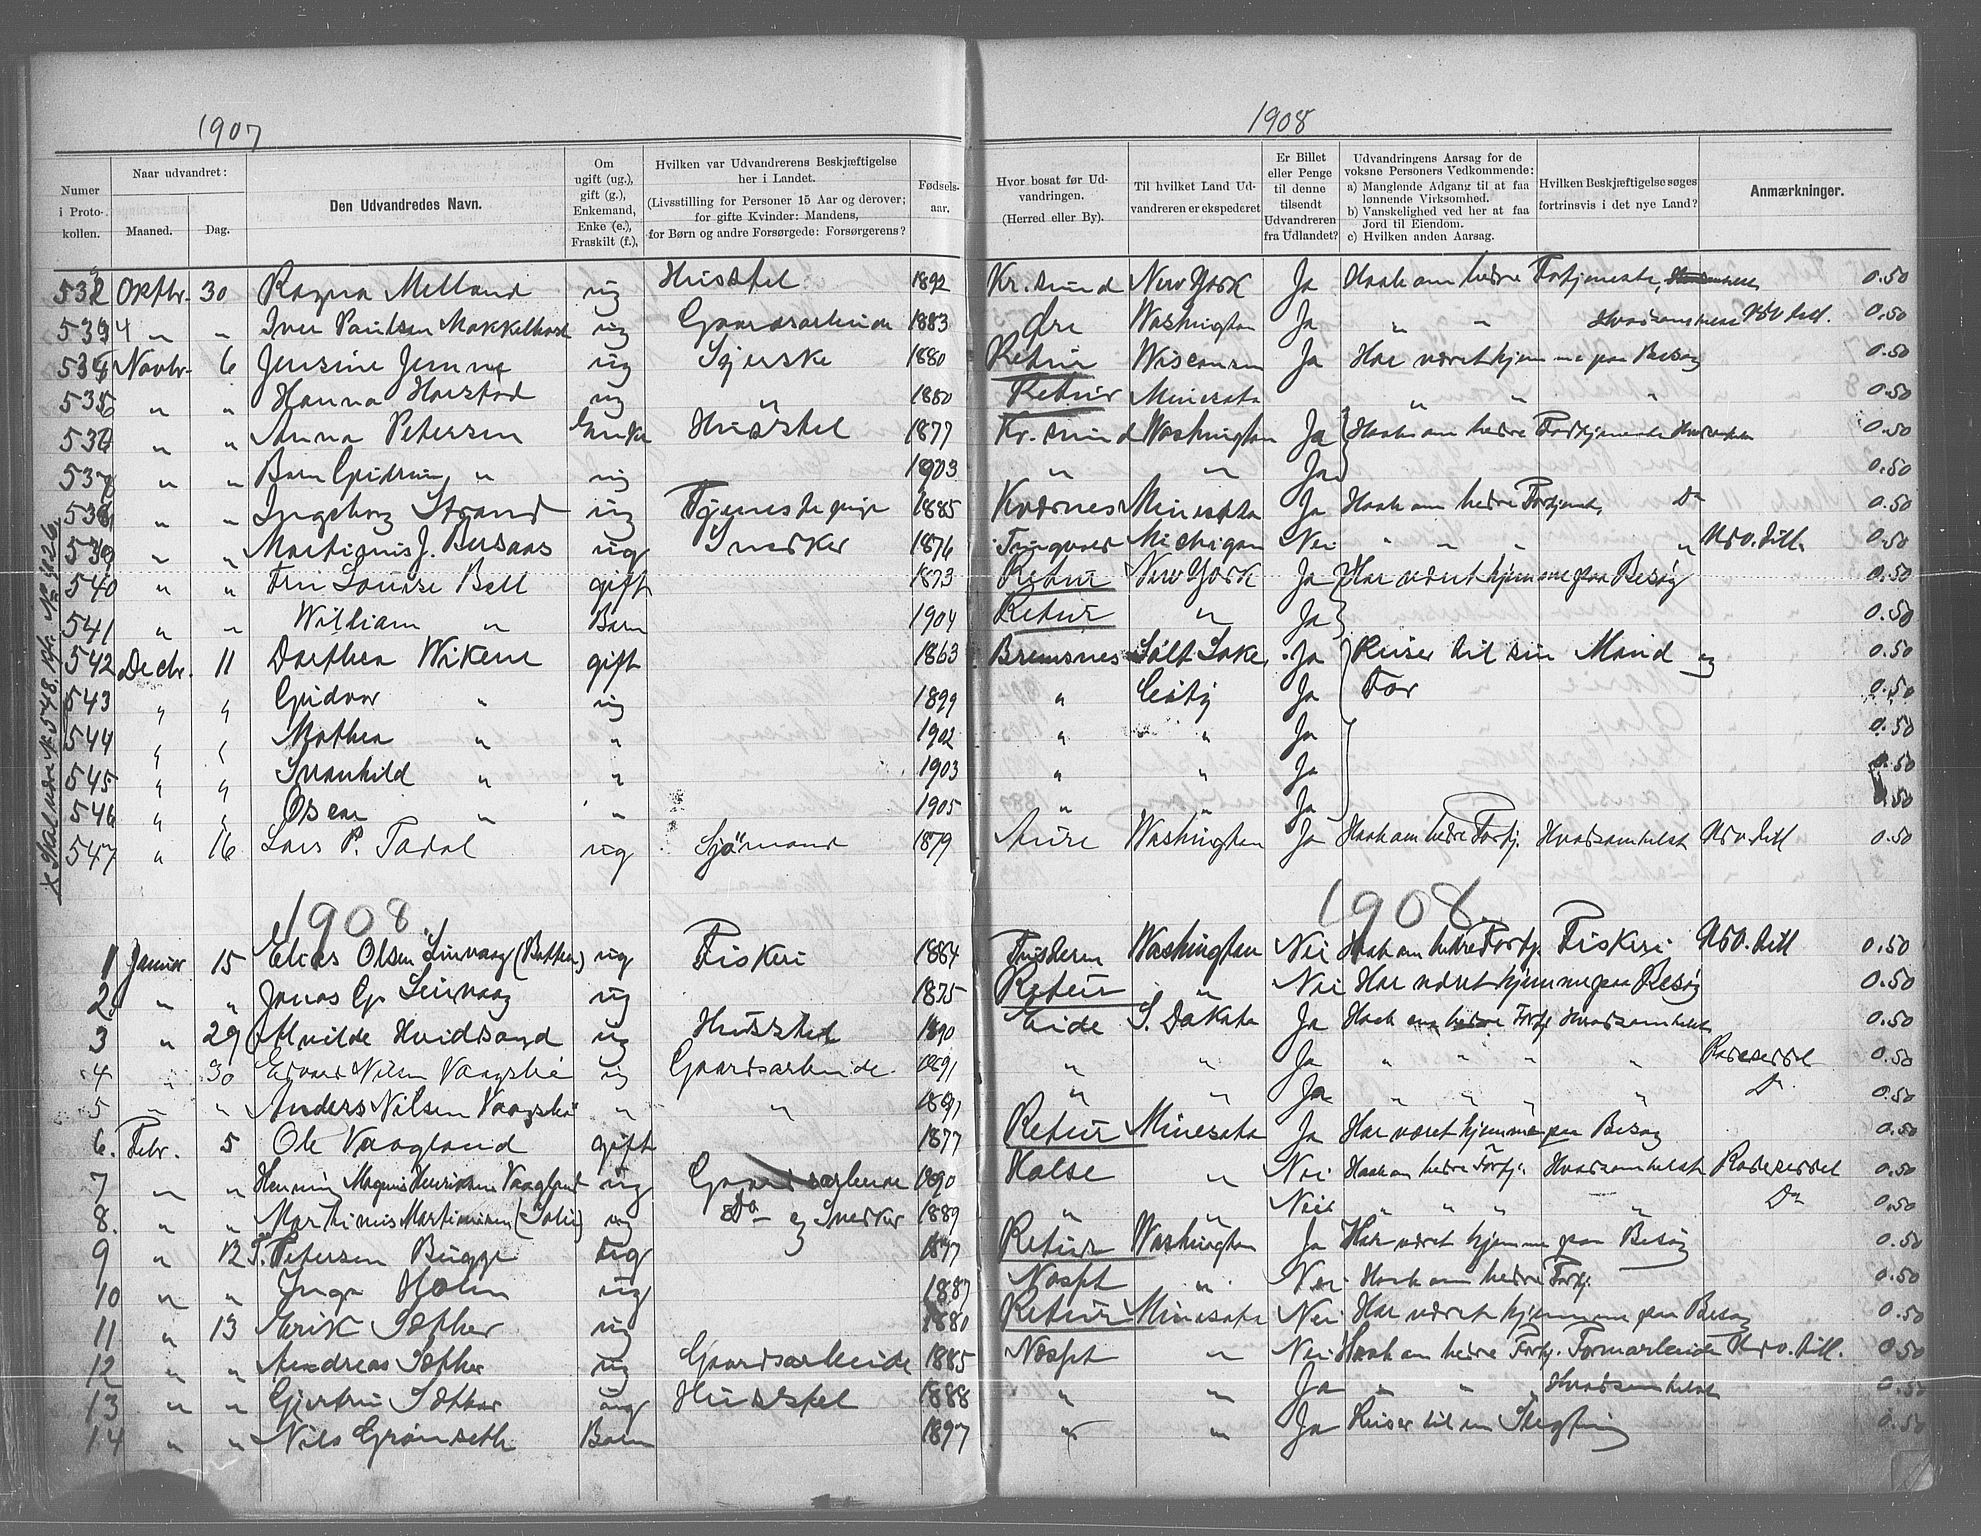 1907
1908
Numer i Protokollen.
Naar udvandret:
Maaned.
Dag.
Den Udvandredes Navn.
Om ugift (ug.), gift (g.), Enkemand, Enke (e.), Fraskilt (f.),
Hvilken var Udvandrerens Beskjæftigelse her i Landet.
(Livsstilling for Personer 15 Aar og derover; for gifte Kvinder: Mandens, for Børn og andre Forsørgede: Forsørgerens?
Fødsels-aar.
Hvor bosat før Udvandringen. (Herred eller By).
Til hvilket Land Udvandreren er ekspederet
Er Billet eller Penge til denne tilsendt Udvandreren fra Udlandet?
Udvandringens Aarsag for de voksne Personers Vedkommende:
a) Manglende Adgang til at faa lønnende Virksomhed.
b) Vanskelighed ved her at faa Jord til Eiendom.
c) Hvilken anden Aarsag.
Hvilken Beskjæftigelse søges fortrinsvis i det nye Land?
Anmærkninger.
532 Oktbr. 30 Ragna Melland ug Husstel 1892 Kr.sund New York Ja Haab om bedre Fortjeneste, 0.50
533 " " Iver Paulsen ug Gaardsarbeide 1883 Øre Washington Ja " " Hvadsomhelst Udv. till. 0.50
534 Novbr. 6 Jensine ug Syerske 1880 Retur Wisconsin Ja Har været hjemme paa Besøg 0.50
535 " " Hanna Harstad ug " 1880 Retur Minesota " " " 0.50
536 " " Anna Petersen Enke Husstel 1877 Kr.sund Washington Ja Haab om bedre Fortjeneste 0.50
537 " " Barn " ug 1903 " " Ja 0.50
538 " " Ingeborg Strand ug Tjenestepige 1885 Kværnes Minesota Ja Haab om bedre Fortjenst. Do 0.50
539 " " Martinus J. ug Snedker 1876 Tingvold Michigan Nei " " " " Udv. till. 0.50
540 " " Fru Louise Bell gift 1873 Retur New York Ja Har været hjemme paa Besøg 0.50
541 " " William " Barn 1904 Retur " Ja 0.50
542 Decbr. 11 Dorthea Wikene gift 1863 Bremsnes Salt Lake Ja Reiser til sin Mand og 0.50
543 " " Gudvor " ug 1899 " City Ja Far 0.50
544 " " Mathea " " 1902 " " Ja 0.50
545 " " Svanhild " " 1903 " " Ja 0.50
546 " " Oscar " " 1905 " " Ja 0.50
547 " 16 Lars P. Todal ug Sjömand 1879 Aure Washington Ja Haab om bedre Fortj. Hvadsomhelst Udv. till 0.50
1908
1908
1 Januar 15 Elias Olsen ug Fiskeri 1864 Tusteren Washington Nei Haab om bedre Fortj. Fiskeri Udv. till 0.50
2 " " Jonas ug 1875 Retur " Nei Har været hjemme paa Besøg 0.50
3 " 29 Alvilde Hvidsand ug Husstel 1890 Eide S. Dakota Ja Haab om bedre Fortj Hvadsomhelst 0.50
4 " 30 Edvard Nilsen ug Gaardsarbeide 1891 " " Ja " " " " 0.50
5 " " Anders Nilsen " " " " Ja " " " " Do 0.50
6. Febr. 5 Ole Vaagland gift 1877 Retur Minesota Ja Har været hjemme paa Besøg 0.50
7 " " Henning Magnus Henriksen Vaagland ug Gaardsarbeide 1890 Halse " Nei Haab om bedre Fortj. Hvadsomhelst 0.50
8. " " Marthinus Martinusen ug Do og Snedker 1889 " " Nei " " " " Do 0.50
9 " 12 Petersen Bugge ug 1877 Retur Washington Ja Har været hjemme paa Besøg 0.50
10 " " Inga Holm ug 1887 Nesset " Nei Haab om bedre Fortj. 0.50
11 " 13 Erik Sæther ug 1880 Retur Minesota Nei Har været hjemme paa Besøg 0.50
12 " " Andreas Sæther ug Gaardsarbeide 1885 Nesset " Nei Haab om bedre Fortj. Farmarbeide Udv. till. 0.50
13 " " Gjertru Sæther ug Husstel 1888 " " Ja " " Hvadsomhelst 0.50
14 " " Nils Grønseth Barn 1897 " " Ja Reiser til en Slegtning 0.50